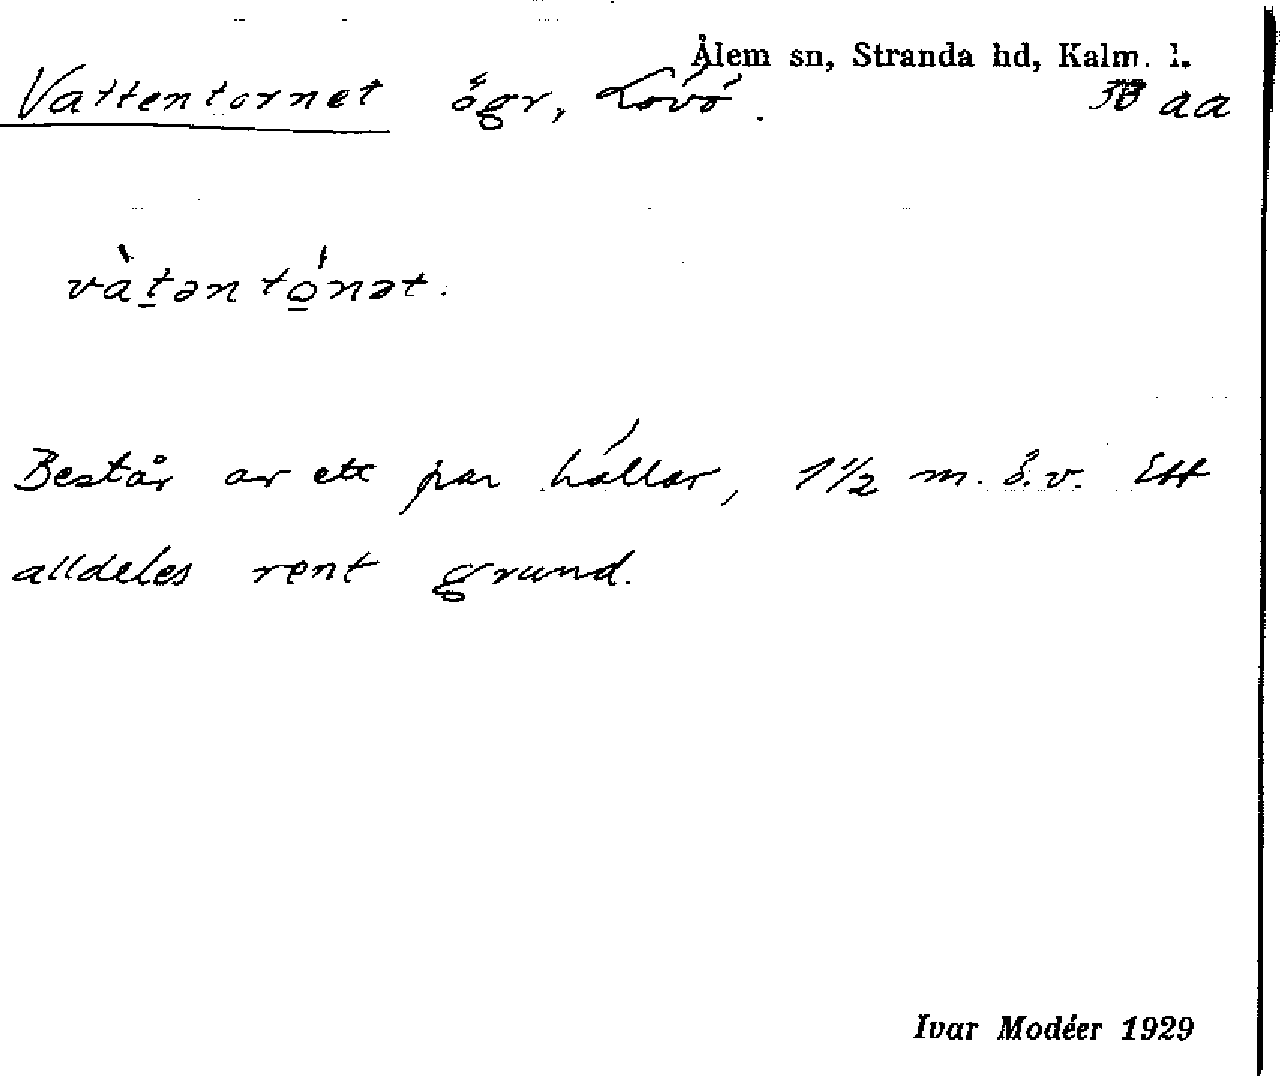 Ålem sn, Stranda hd, Kalm. l.
Vattentornet ögr, Lövö. aa
và̀t̠ən tó̠nət.
Består av ett par hällar, 1 1/2 m. ö.v. Ett
alldeles rent grund.
Ivar Modéer 1929